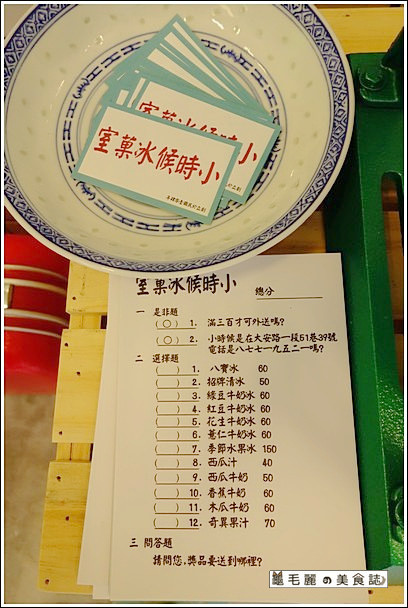 室菓冰候時小
室菓冰候時小
小時候冰菓室 總分
一 是非題
(○) 1. 滿三百才可外送嗎?
(○) 2. 小時候是在大安路一段51巷39號
電話是八七七一九五二一嗎?
二 選擇題
( ) 1. 八寶冰 60
( ) 2. 招牌清冰 50
( ) 3. 綠豆牛奶冰 60
( ) 4. 紅豆牛奶冰 60
( ) 5. 花生牛奶冰 60
( ) 6. 薏仁牛奶冰 60
( ) 7. 季節水果冰 150
( ) 8. 西瓜汁 40
( ) 9. 西瓜牛奶 50
( ) 10. 香蕉牛奶 60
( ) 11. 木瓜牛奶 60
( ) 12. 奇異果汁 70
三 問答題
請問您,獎品要送到哪裡?
毛麗の美食誌